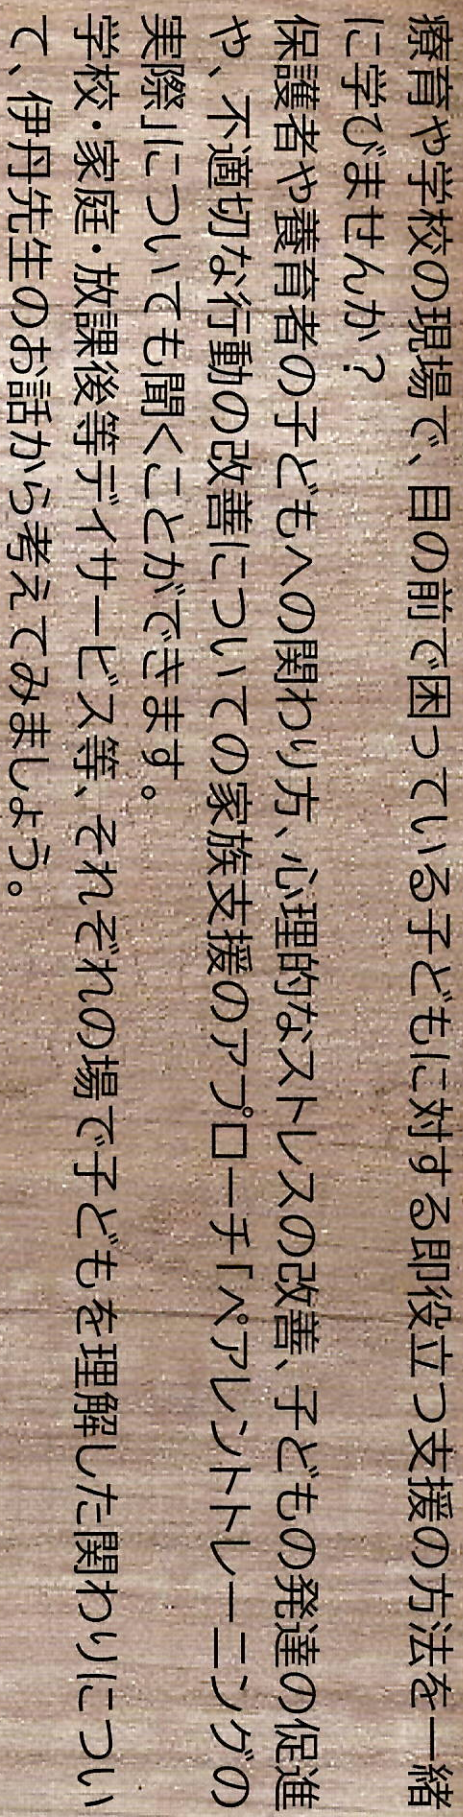 療育や学校の現場で、目の前で困っている子どもに対する即役立つ支援の方法を一緒
に学びませんか？
保護者や養育者の子どもへの関わり方、心理的なストレスの改善、子どもの発達の促進
や、不適切な行動の改善についての家族支援のアプローチ「ペアレントトレーニングの
実際」についても聞くことができます。
学校・家庭・放課後等デイサービス等、それぞれの場で子どもを理解した関わりについ
て、伊丹先生のお話から考えてみましょう。